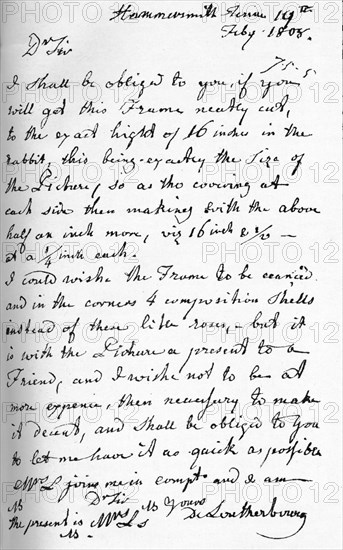 Hammersmith Terrace 19th
Feby 1808.
Dr Sir
I shall be obliged to you, if you
will get this Frame neatly cut,
to the exact hight of 16 inches in the
rabbit, this being exactly the size of
the Picture, so as tho covering at
each side then making with the above
half an inch more, viz 16 inch & 1/2 —
at a 1/4 inch each.
I could wishe the Frame to be
and in the corners 4 composition Shells
instead of these litle roses, – but it
is with the Picture a present to a
Friend, and I wishe not to be at
more expence, then necessary to make
it decent, and shall be obliged to you
to let me have it as quick as possible
Mrs L joins me in compts and I am
Dr Sir
Yours
the present is Mrs Ls
De Loutherbourg